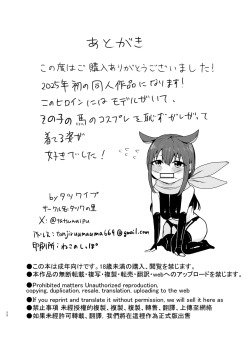 あとがき
この度はご購入ありがとうございました!
2025年初の同人作品になります!
このヒロインにはモデルがいて、
その子の馬のコスプレを恥ずかしがって
着てる姿が
好きでした!
byタツワイプ
サークル名:タツワの里
X:@tatuwaipu
アドレス:tonjiruumauma664@gmail.com
印刷所:ねこのしっぽ
●この本は成年向けです。18歳未満の購入、閲覧を禁じます。
●本作品の無断転載・複写・複製・転売・翻訳・webへのアップロードを禁じます。
●Prohibited matters Unauthorized reproduction,
copying, duplication, resale, translation, uploading to the web
●If you reprint and translate it without permission. we will sell it here as
●禁止事項 未經授權的複製、複製、複製、轉售、翻譯、上傳至網絡
●如果未經許可轉載、翻譯,我們將在這裡作為正式版出售